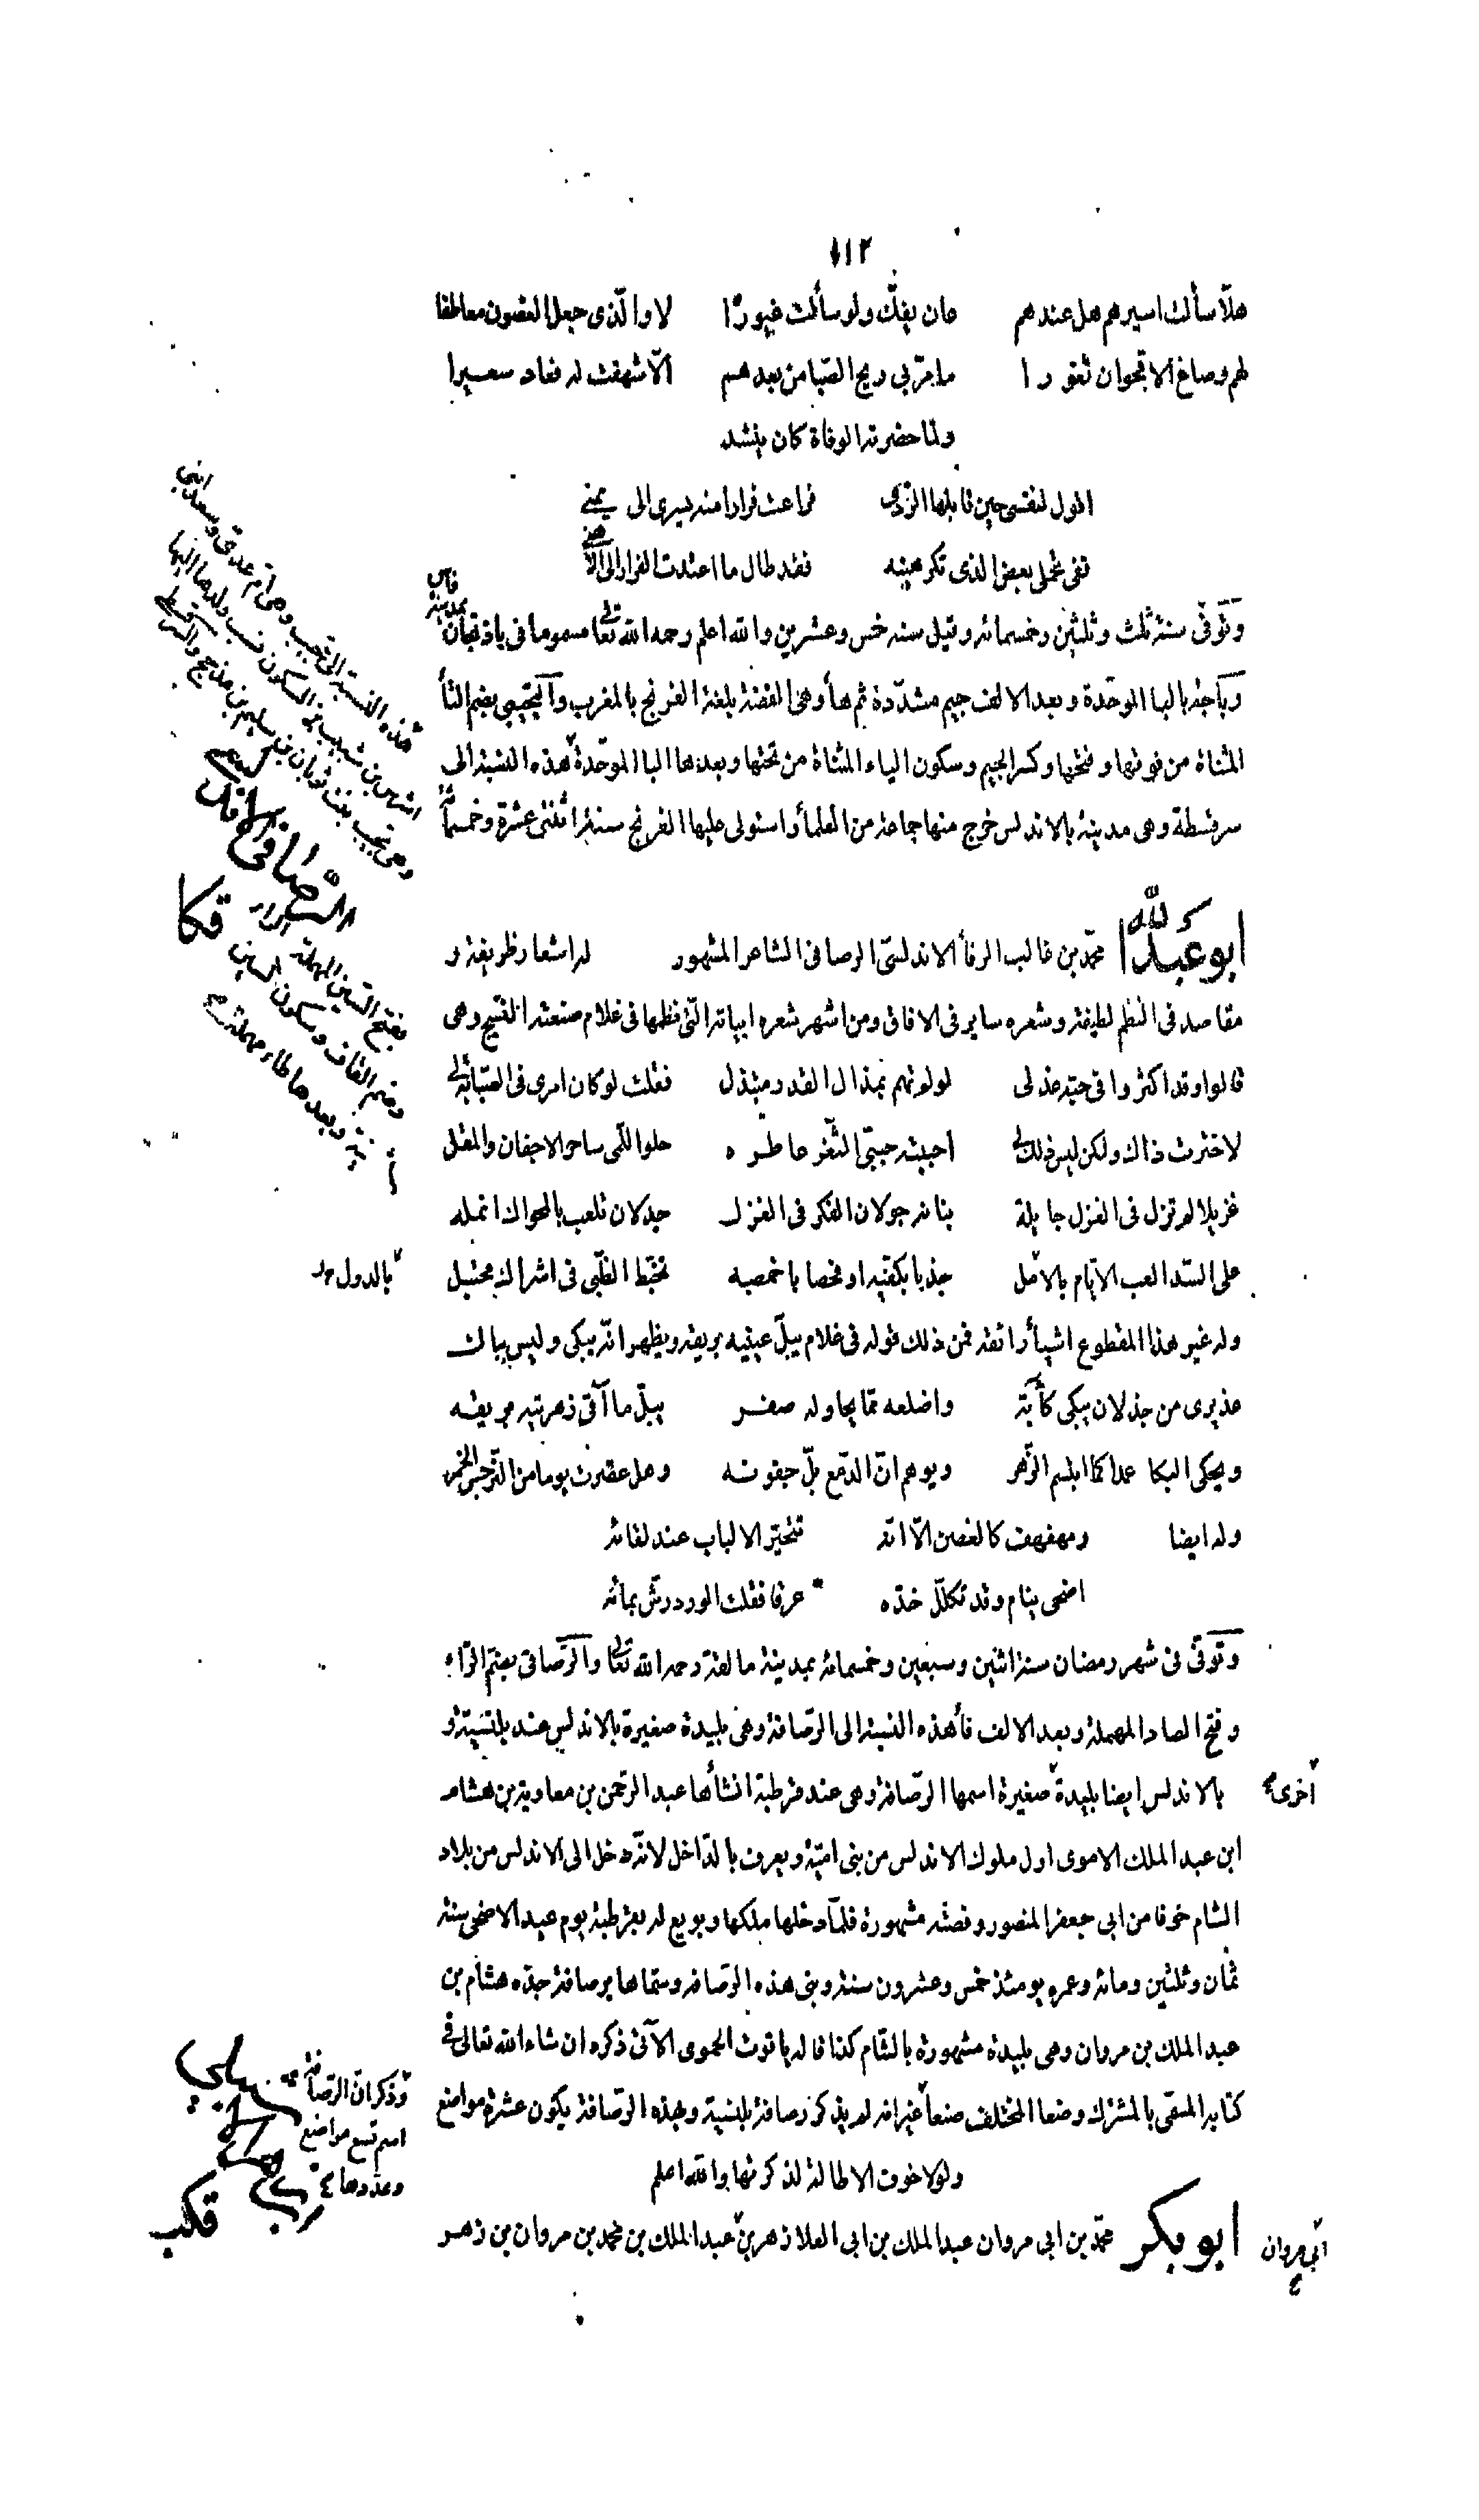 ١١٢
هلّا سألت اسيرهم هل عندهم عان يفكّ ولو سألت غيورًا لا والّذى جعل الغصون معاطفا
لهم وصاغ الاقحوان ثغورا ما مرّ بى ريح الصّبا من بعدهم الّا شهقت له فعاد سعيرا
ولمّا حضرته الوفاة كان ينشد
اقول لنفسى حين قابلها الرّدى فراعت فرارا منه يسرى الى يمنى
قفى تحملى بعض الذى تكرهينه فقد طال ما اعتدت الفرار الى الاهنى
وتوفّى سنة ثلث وثلثين وخمسمائه وقيل سنه خمس وعشرين والله اعلم رحمه الله تعالى مسموما فى باذنجان بمدينة فاس
وباجّه بالبا الموحّدة وبعد الالف جيم مشدّدة ثم هاء وهى الفضة بلغة الفرنج بالمغرب والتجيبى بضم التاء
المثناة من فوقها وفتحها وكسر الجيم وسكون الياء المثناة من تحتها وبعدها البا الموحّدة هذه النسبة الى
سرقسطة وهى مدينة بالاندلس خرج منها جماعة من العلماء واستولى عليها الفرنج سنة اثنتى عشرة وخمسمائة
هذه النسبة الى تجيب وهى ام عدى وسعد ابنى
اشرس بن شبيب بن السكون نسب ولدها اليها
وهى تجيب بنت ثوبان بن سليم بن مذحج والسرقسطى
بفتح السين المهملة والراء
وضم القاف وسكون السين
الثانية وبعدها طاء مهملة
الرصافى
قكا
ابو عبد الله محمّد بن غالب الرفاء الاندلسّى الرصافى الشاعر المشهور له اشعار ظريفة و
مقاصد فى النظم لطيفة وشعره ساير فى الافاق ومن اشهر شعره ابياته الّتى نظمها فى غلام صنعته النسيج وهى
قالوا وقد اكثروا فى حبّه عذلى لو لم تهم بمذال القدر مبتذل فقلت لو كان امرى فى الصّبابة لى
لاخترت ذاك ولكن ليس ذلك لى احببته حببىّ الثّغر عاطره حلو اللّمى ساحر الاجفان والمقل
غزيلا لم تزل فى الغزل جايلة بنانه جولان الفكر فى الغزل جذلان تلعب بالمحواك انمله
على السّدا لعب الايّام بالامل جذبا بكفّيه او فحصا باخمصه تخبّط الظّبى فى اشراك محتبل
بالدول
وله غير هذا المقطوع اشياء رائقة فمن ذلك قوله فى غلام يبلّ عينيه بريقه ويظهر انّه يبكى وليس بباك
عذيرى من جذلان يبكى كآبة واضلعه ممّا يحاوله صفر يبلّ مآقى زهرتيه بريقه
ويحكى البكا عمدا كما ابتسم الزّهر ويوهم انّ الدّمع بلّ جفونه وهل عصرت يوما من النّرجس الخمر
وله ايضا ومهفهف كالغصن الّا انّه تتحيّر الالباب عند لقائه
اضحى ينام وقد تكلّل خدّه عرقا فقلت الورد رشّ بمائه
وتوفّى فى شهر رمضان سنة اثنين وسبعين وخمسمائه بمدينة مالقة رحمه الله تعالى والرّصافى بضم الرّاء
وفتح الصاد المهملة وبعد الالف فاء هذه النسبة الى الرّصافة وهى بليدة صغيرة بالاندلس عند بلنسيّة و
بالاندلس ايضا بليدة صغيرة اسمها الرّصافة وهى عند قرطبة انشأها عبد الرّحمن بن معاوية بن هشام
أخرى
ابن عبد الملك الاموى اول ملوك الاندلس من بنى اميّة ويعرف بالدّاخل لانّه دخل الى الاندلس من بلاد
الشام خوفا من ابى جعفر المنصور وقصته مشهورة فلمّا دخلها ملكها وبويع له بقرطبة يوم عيد الاضحى سنة
ثمان وثلثين ومائه وعمره يومئذ خمس وعشرون سنة وبنى هذه الرّصافه وسمّاها برصافة جدّه هشام بن
عبد الملك بن مروان وهى بليدة مشهورة بالشّام كذا قاله ياقوت الحموى الآتى ذكره ان شاء الله تعالى فى
كتابه المسمّى بالمشترك وضعا المختلف صنعاً غير انه لم يذكر رصافة بلنسية وبهذه الرّصافة يكون عشرة مواضع
وذكر ان الرّصافة
اسم تسع مواضع
وعددها
ولولا خوف الاطالة لذكرتها والله اعلم
قكب
ابو بكر محمّد بن ابى مروان عبد الملك بن ابى العلا زهر بن عبد الملك بن محمد بن مروان بن زهر
ابى مروان